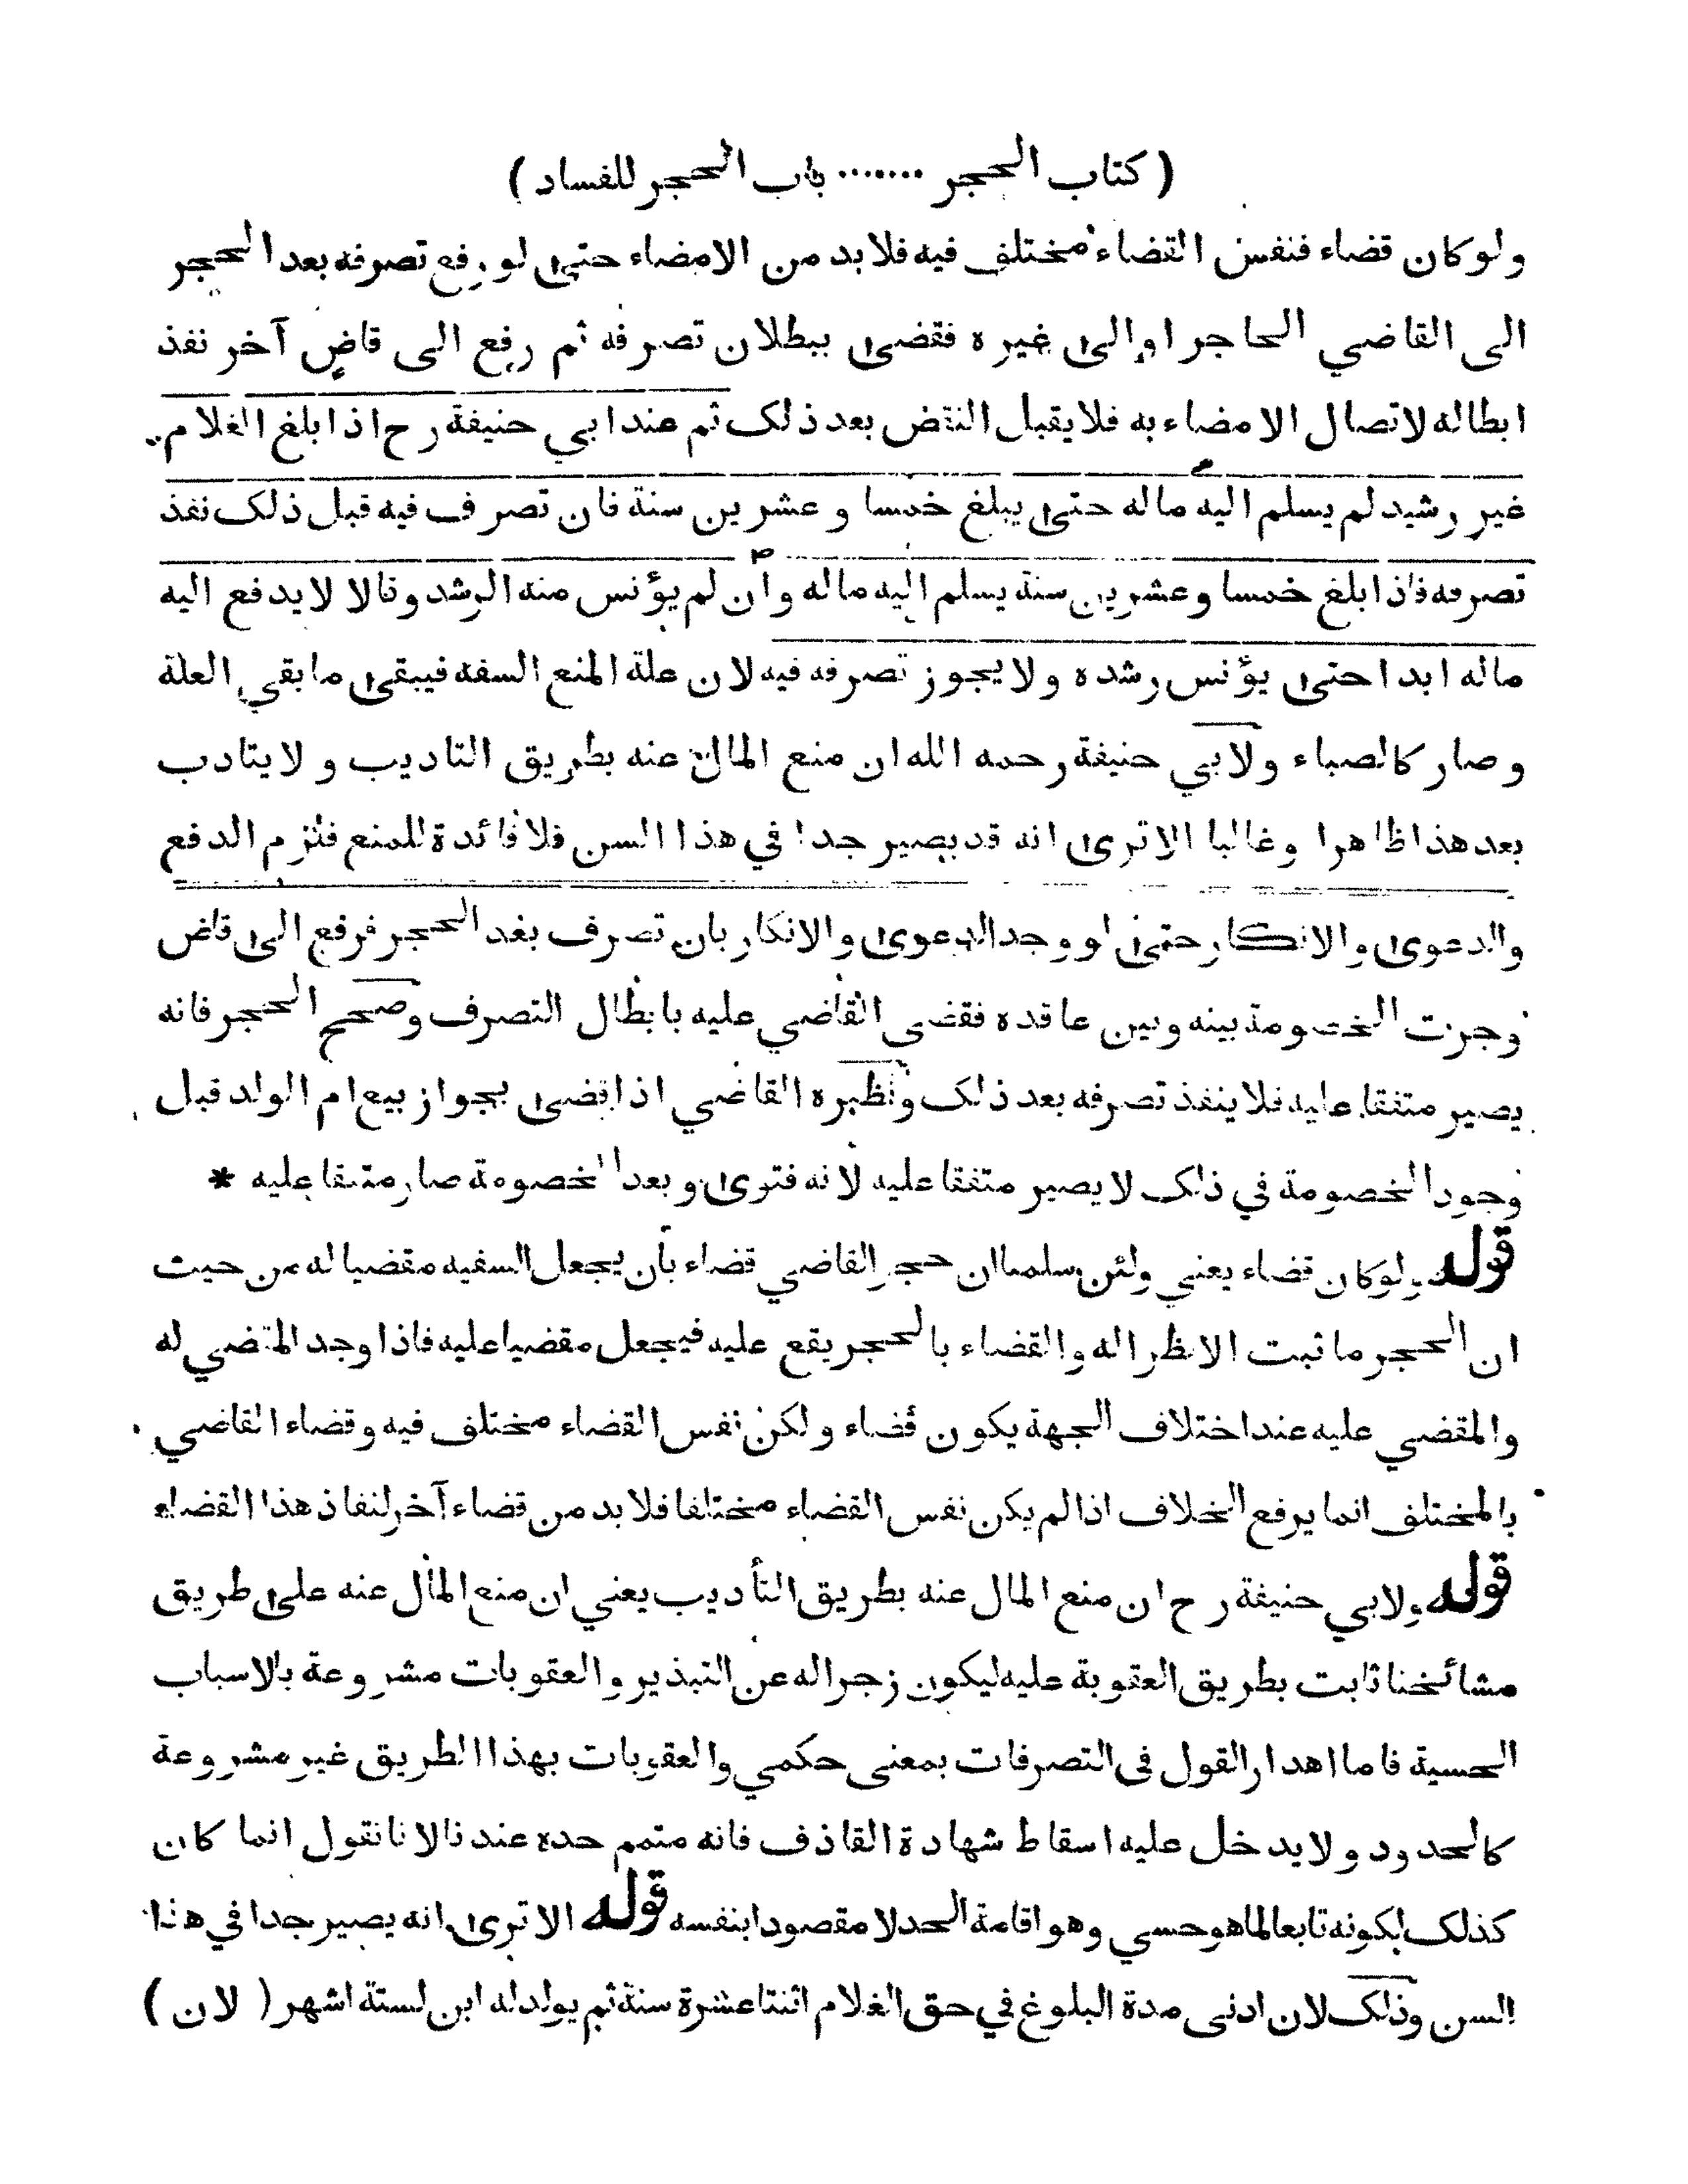 ( كتاب الحجر ....... باب الحجر للفساد )
ولو كان قضاء فنفس القضاء مختلف فيه فلا بد من الامضاء حتى لو رفع تصرفه بعد الحجر
الى القاضي الحاجر او الى غيره فقضى ببطلان تصرفه ثم رفع الى قاض آخر نفذ
ابطاله لاتصال الامضاء به فلا يقبل النقض بعد ذلك ثم عند ابي حنيفة رح اذا بلغ الغلام
غير رشيد لم يسلم اليه ماله حتى يبلغ خمسا و عشرين سنة فان تصرف فيه قبل ذلك نفذ
تصرفه فاذا بلغ خمسا وعشرين سنة يسلم اليه ماله وان لم يؤنس منه الرشد وقالا لا يدفع اليه
ماله ابدا حتى يؤنس رشده ولا يجوز تصرفه فيه لان علة المنع السفه فيبقى ما بقي العلة
و صار كالصباء ولابي حنيفة رحمه الله ان منع المال عنه بطريق التاديب و لا يتادب
بعد هذا ظاهرا وغالبا الا ترى انه قد يصير جدا في هذا السن فلا فائدة للمنع فلزم الدفع
والدعوى والانكار حتى لو وجد الدعوى والانكار بان تصرف بعد الحجر فرفع الى قاض
وجرت الخصومة بينه وبين عاقده فقضى القاضي عليه بابطال التصرف وصحح الحجر فانه
يصير متفقا عليه فلا ينفذ تصرفه بعد ذلك ونظيره القاضي اذا قضى بجواز بيع ام الولد قبل
وجود الخصومة في ذلك لا يصير متفقا عليه لانه فتوى و بعد الخصومة صار متفقا عليه *
قوله ولو كان قضاء يعني ولئن سلمنا ان حجر القاضي قضاء بأن يجعل السفيه مقضيا له من حيث
ان الحجر ما ثبت الا نظرا له والقضاء بالحجر يقع عليه فيجعل مقضيا عليه فاذا وجد المقضي له
والمقضي عليه عند اختلاف الجهة يكون قضاء ولكن نفس القضاء مختلف فيه وقضاء القاضي
بالمختلف انما يرفع الخلاف اذا لم يكن نفس القضاء مختلفا فلا بد من قضاء آخر لنفاذ هذا القضاء
قوله ولابي حنيفة رح ان منع المال عنه بطريق التأديب يعني ان منع المال عنه على طريق
مشائخنا ثابت بطريق العقوبة عليه ليكون زجرا له عن التبذير والعقوبات مشروعة بالاسباب
الحسية فاما اهدار القول في التصرفات بمعنى حكمي والعقوبات بهذا الطريق غير مشروعة
كالحدود ولا يدخل عليه اسقاط شهادة القاذف فانه متمم حده عندنا لانا نقول انما كان
كذلك لكونه تابعا لما هو حسي وهو اقامة الحد لا مقصودا بنفسه قوله الا ترى انه يصير جدا في هذا
السن وذلك لان ادنى مدة البلوغ في حق الغلام اثنتا عشرة سنة ثم يولد له ابن لستة اشهر ( لان )